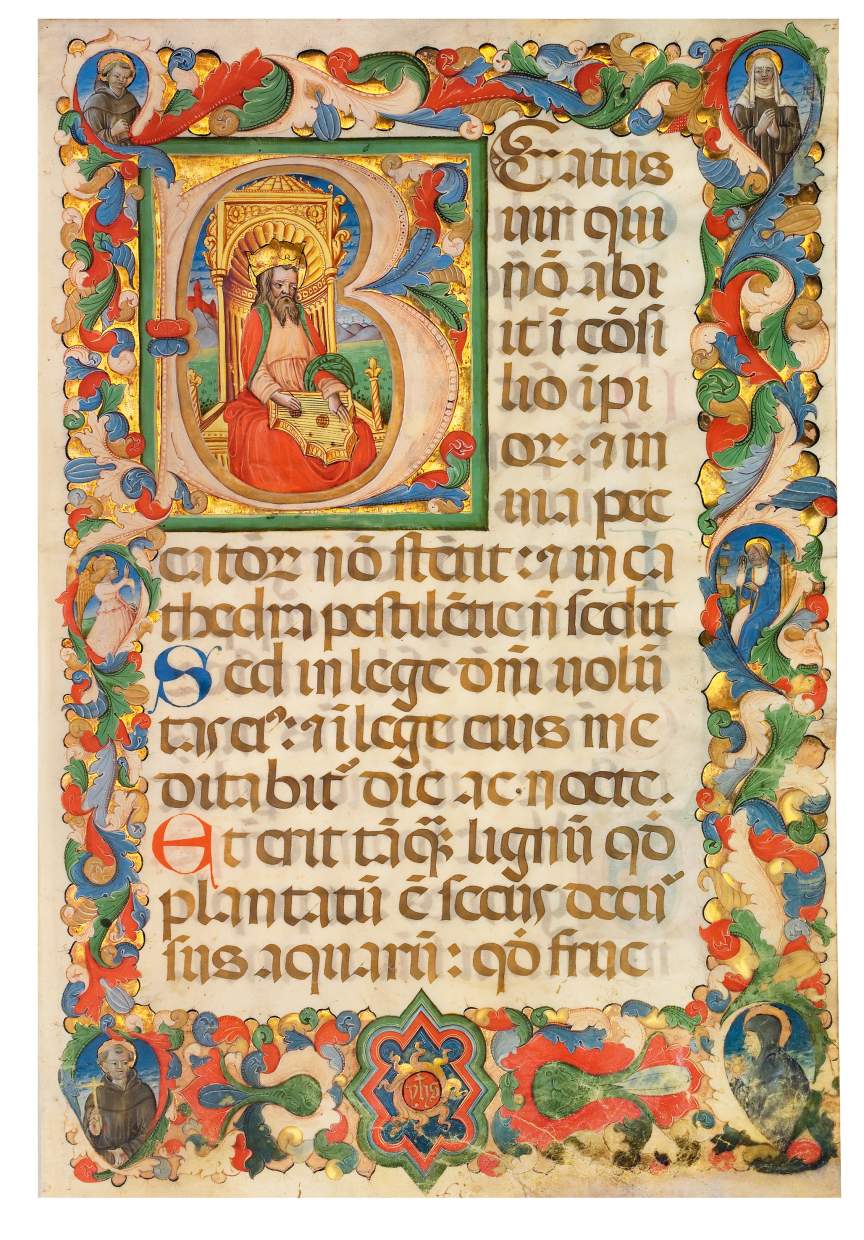 BEatus
uir qui
nō abi
it ī cōsi
lio īpi
oꝝ. ⁊ in
uia pec
catoꝝ nō stetit : ⁊ in ca
thedra pestilētie nō sedit
Sed in lege dn̄i uolū
tas eiꝰ : ⁊ ī lege eius me
ditabit᷑ die ac · nocte.
Et erit tāqꝫ lignū qđ
plantatū ē secus decur
sus aquarū : qđ fruc
yhs